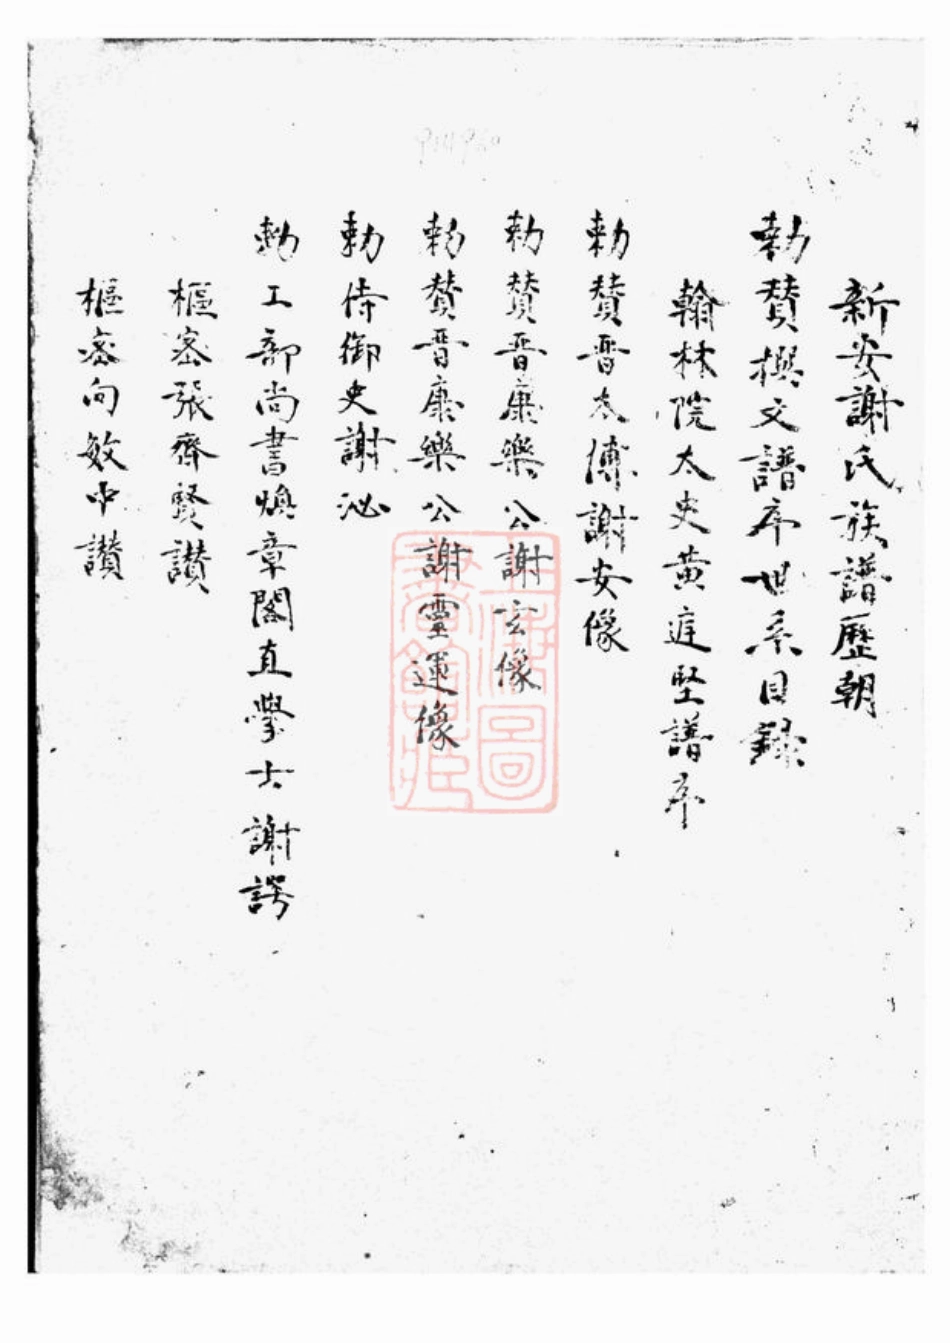 新安謝氏族譜歷朝
勅賛撰文譜序世系目録
翰林院太史黄庭堅譜序
勅賛晋太傅謝安像
勅賛晋康樂公謝玄像
勅賛晋康樂公謝靈運像
勅侍御史謝泌
勅工部尚書煥章閣直學士謝諤
樞密張齊賢讃
樞密向敏中讃
上海圖
書館藏